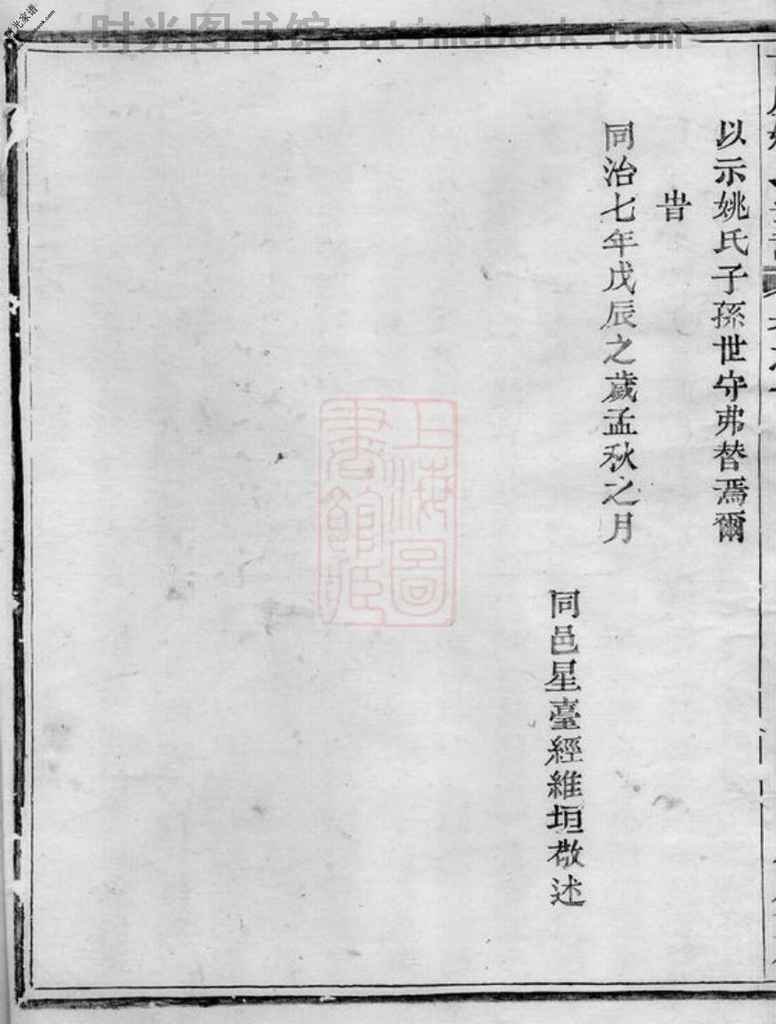 以示姚氏子孫世守弗替焉爾
旹
同治七年戊辰之歲孟秋之月
同邑星臺經維垣敬述
上海圖
書館
时光图书馆 atimebook.com
时光家谱